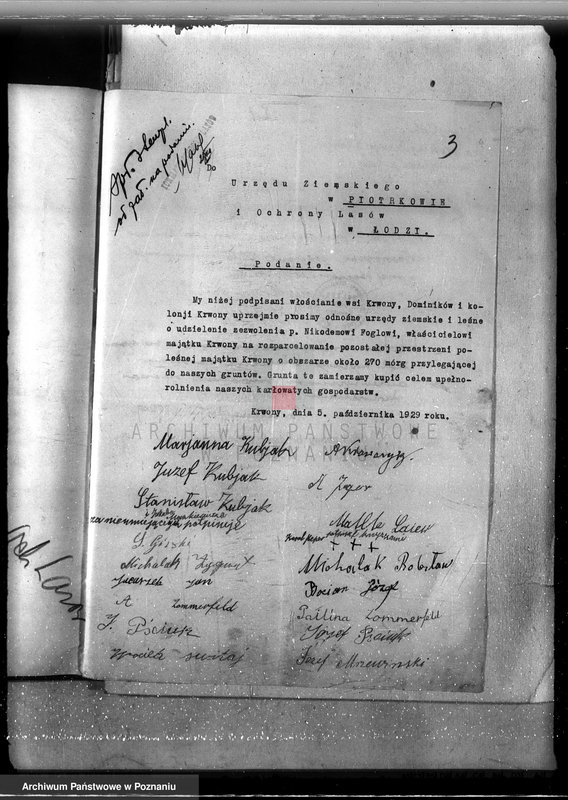 3
Do
Urzędu Ziemskiego
w PIOTRKOWIE
i Ochrony Lasów
w ŁODZI.
Podanie.
My niżej podpisani włościanie wsi Krwony, Dominików i ko-
lonji Krwony uprzejmie prosimy odnośne urzędy ziemskie i leśne
o udzielenie zezwolenia p. Nikodemowi Foglowi, właścicielowi
majątku Krwony na rozparcelowanie pozostałej przestrzeni po-
leśnej majątku Krwony o obszarze około 270 mórg przylegającej
do naszych gruntów. Grunta te zamierzamy kupić celem upełno-
rolnienia naszych karłowatych gospodarstw.
Krwony, dnia 5. października 1929 roku.
ARCHIWUM PAŃSTWOWE
W POZNANIU
Marjanna Kubjak
Juzef Kubjak
Stanisław Kubjak
za nieumiejących podpisuje
+ + +
Michalak Zygmunt
Michalak Bolesław
Jan
Bocian Józef
A Zommerfeld
Paulina Zommerfeld
J. Pściuk
Józef Pściuk
Józef
Archiwum Państwowe w Poznaniu